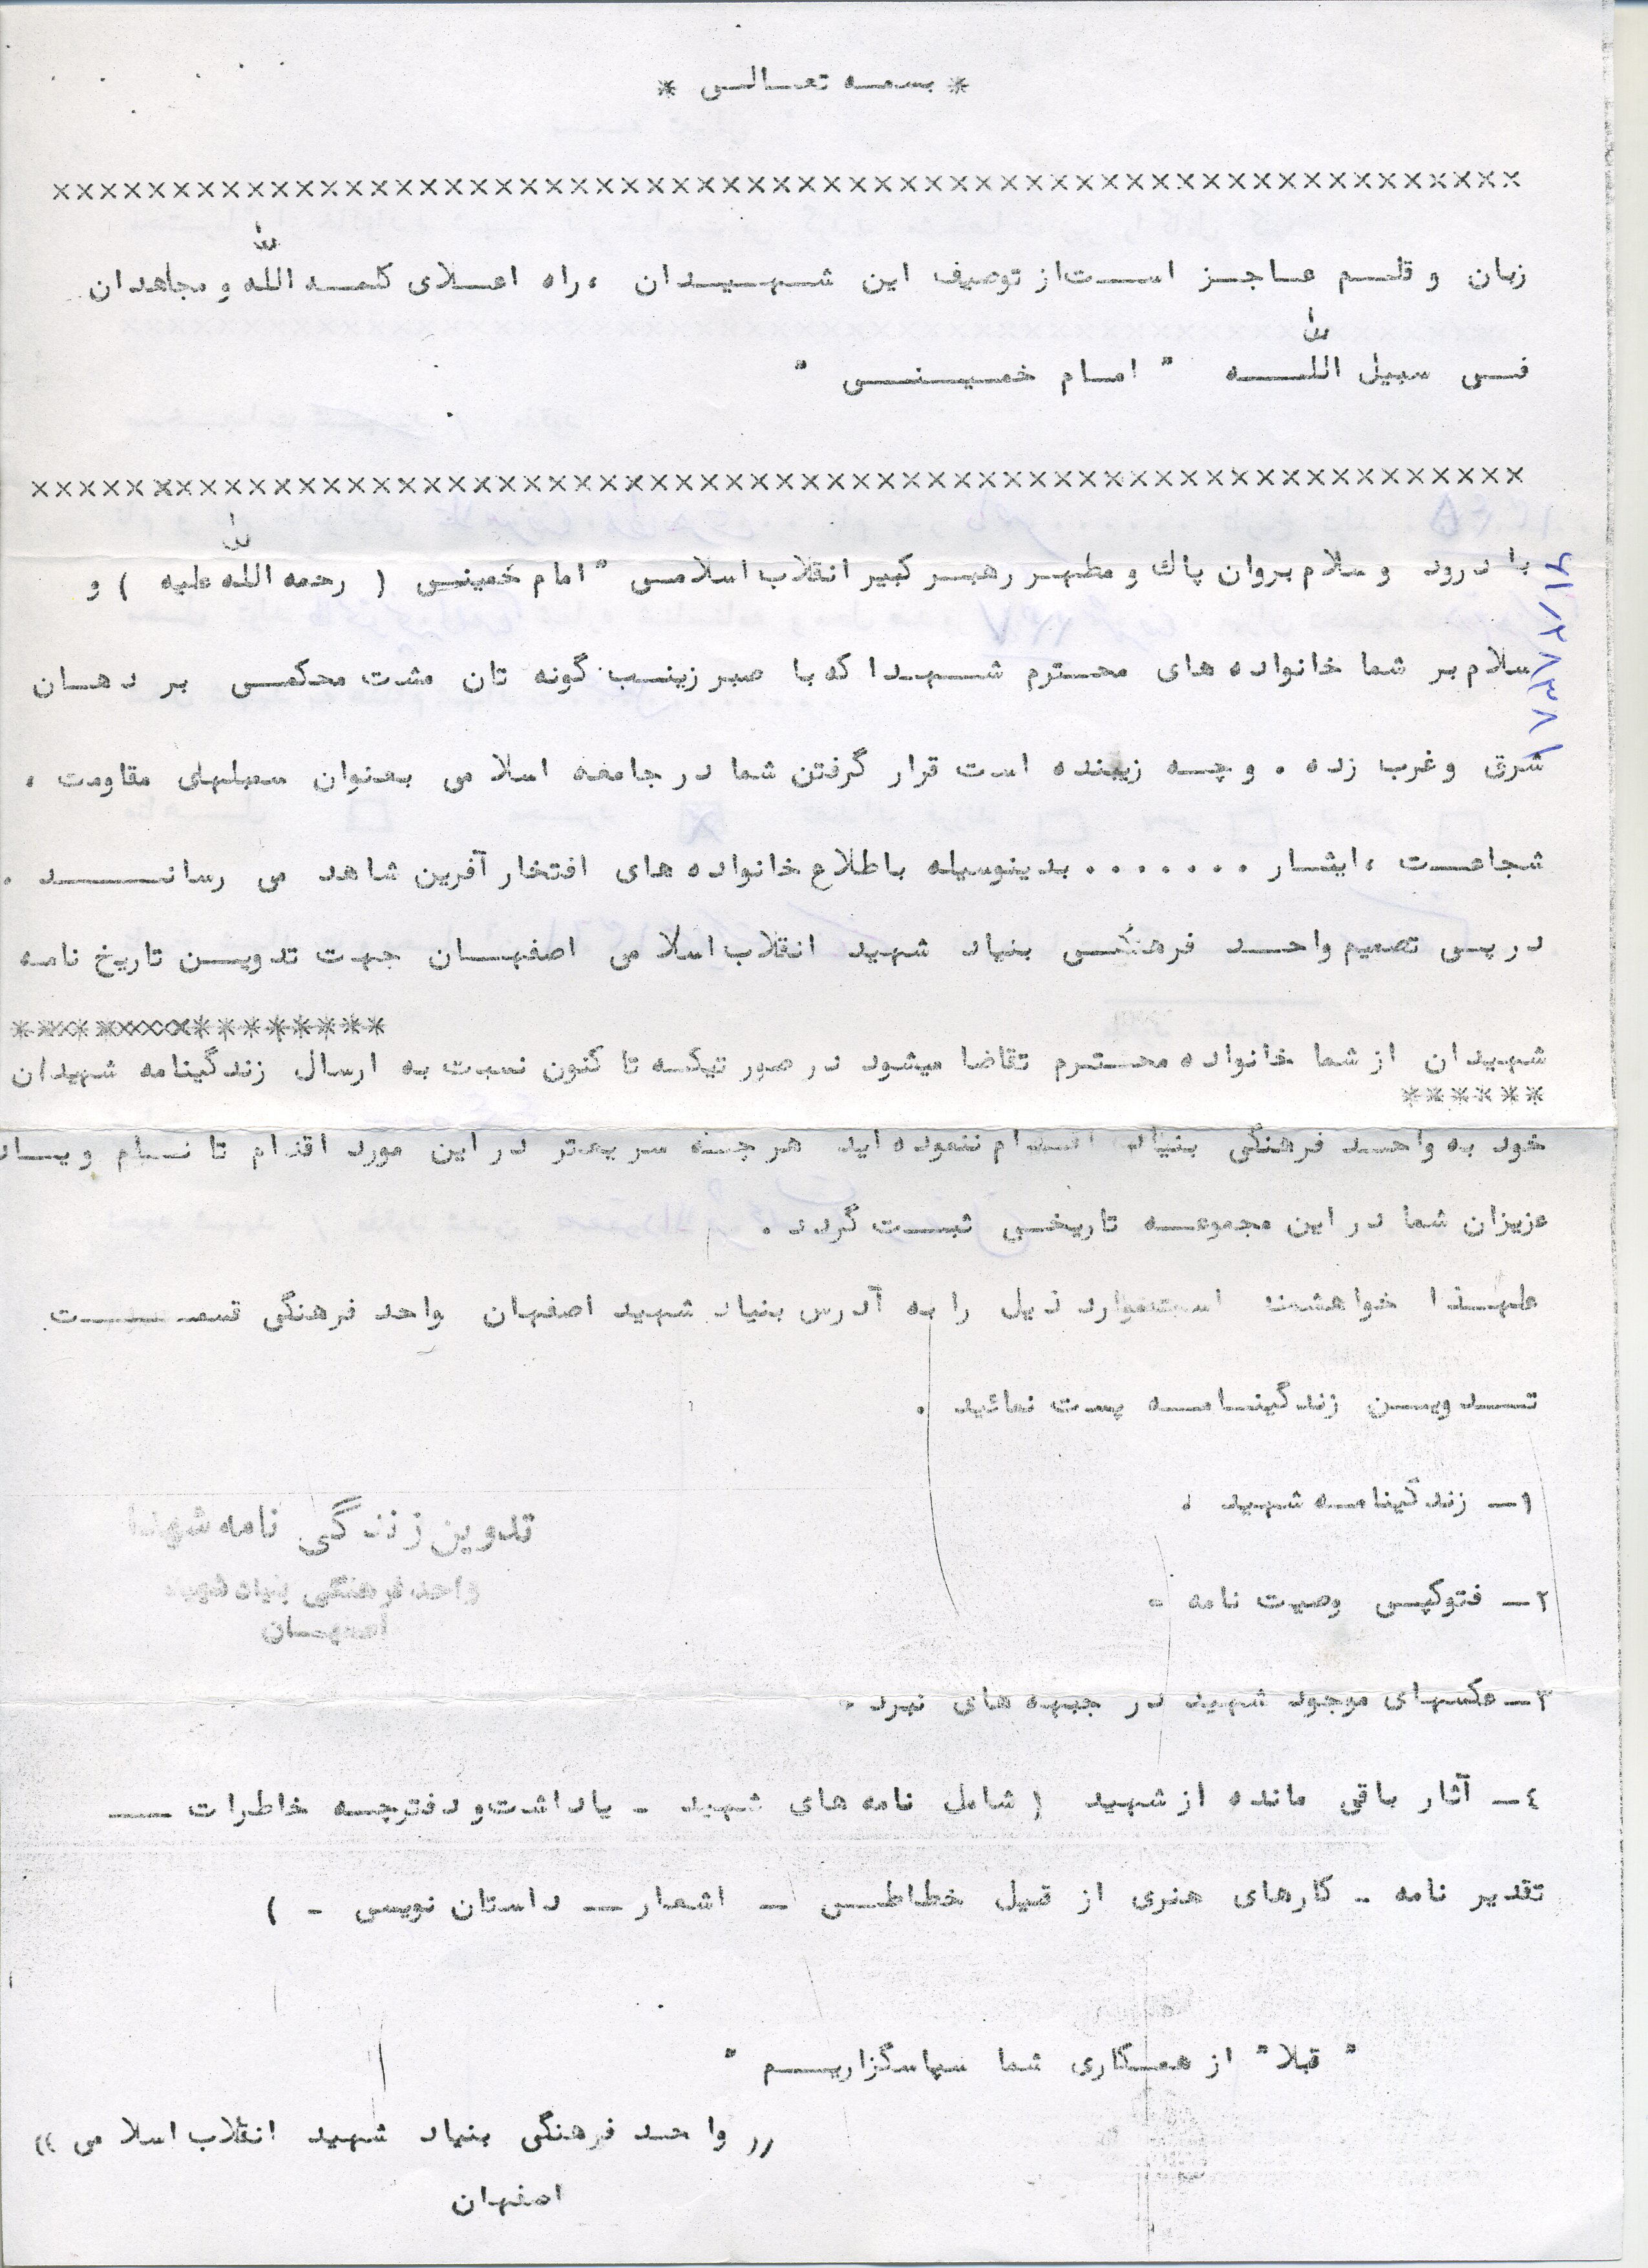 * بسمه تعالی *
××××××××××××××××××××××××××××××××××××××××××××××××××××××××××
زبان و قلم عاجز است از توصیف این شهیدان ، راه اعلای کلمه الله و مجاهدان
فی سبیل الله " امام خمینی "
××××××××××××××××××××××××××××××××××××××××××××××××××××××××××××
با درود و سلام بروان پاک و مطهر رهبر کبیر انقلاب اسلامی " امام خمینی ( رحمه الله علیه ) و
سلام بر شما خانواده های محترم شهدا که با صبر زینب گونه تان مشت محکمی بر دهان
شرق و غرب زده . و چه زیبنده است قرار گرفتن شما در جامعه اسلامی بعنوان سمبلهای مقاومت ،
شجاعت ، ایثار ....... بدینوسیله باطلاع خانواده های افتخار آفرین شاهد می رساند .
در پی تصمیم واحد فرهنگی بنیاد شهید انقلاب اسلامی اصفهان جهت تدوین تاریخ نامه
****************
شهیدان از شما خانواده محترم تقاضا میشود در صورتیکه تا کنون نسبت به ارسال زندگینامه شهیدان
******
خود به واحد فرهنگی بنیاد اقدام ننموده اید هر چه سریعتر در این مورد اقدام تا نام و یاد
عزیزان شما در این مجموعه تاریخی ثبت گردد .
علیهذا خواهشمند است موارد ذیل را به آدرس بنیاد شهید اصفهان واحد فرهنگی قسمت
تدوین زندگینامه پست نمائید .
۱- زندگینامه شهید .
تدوین زندگی نامه شهدا
واحد فرهنگی بنیاد شهید
اصفهان
۲- فتوکپی وصیت نامه -
۳- عکسهای موجود شهید در جبهه های نبرد .
٤- آثار باقی مانده از شهید ( شامل نامه های شهید - یاداشت و دفترچه خاطرات -
تقدیر نامه - کارهای هنری از قبیل خطاطی - اشعار - داستان نویسی - )
" قبلا" از همکاری شما سپاسگزاریم "
(( واحد فرهنگی بنیاد شهید انقلاب اسلامی ))
اصفهان